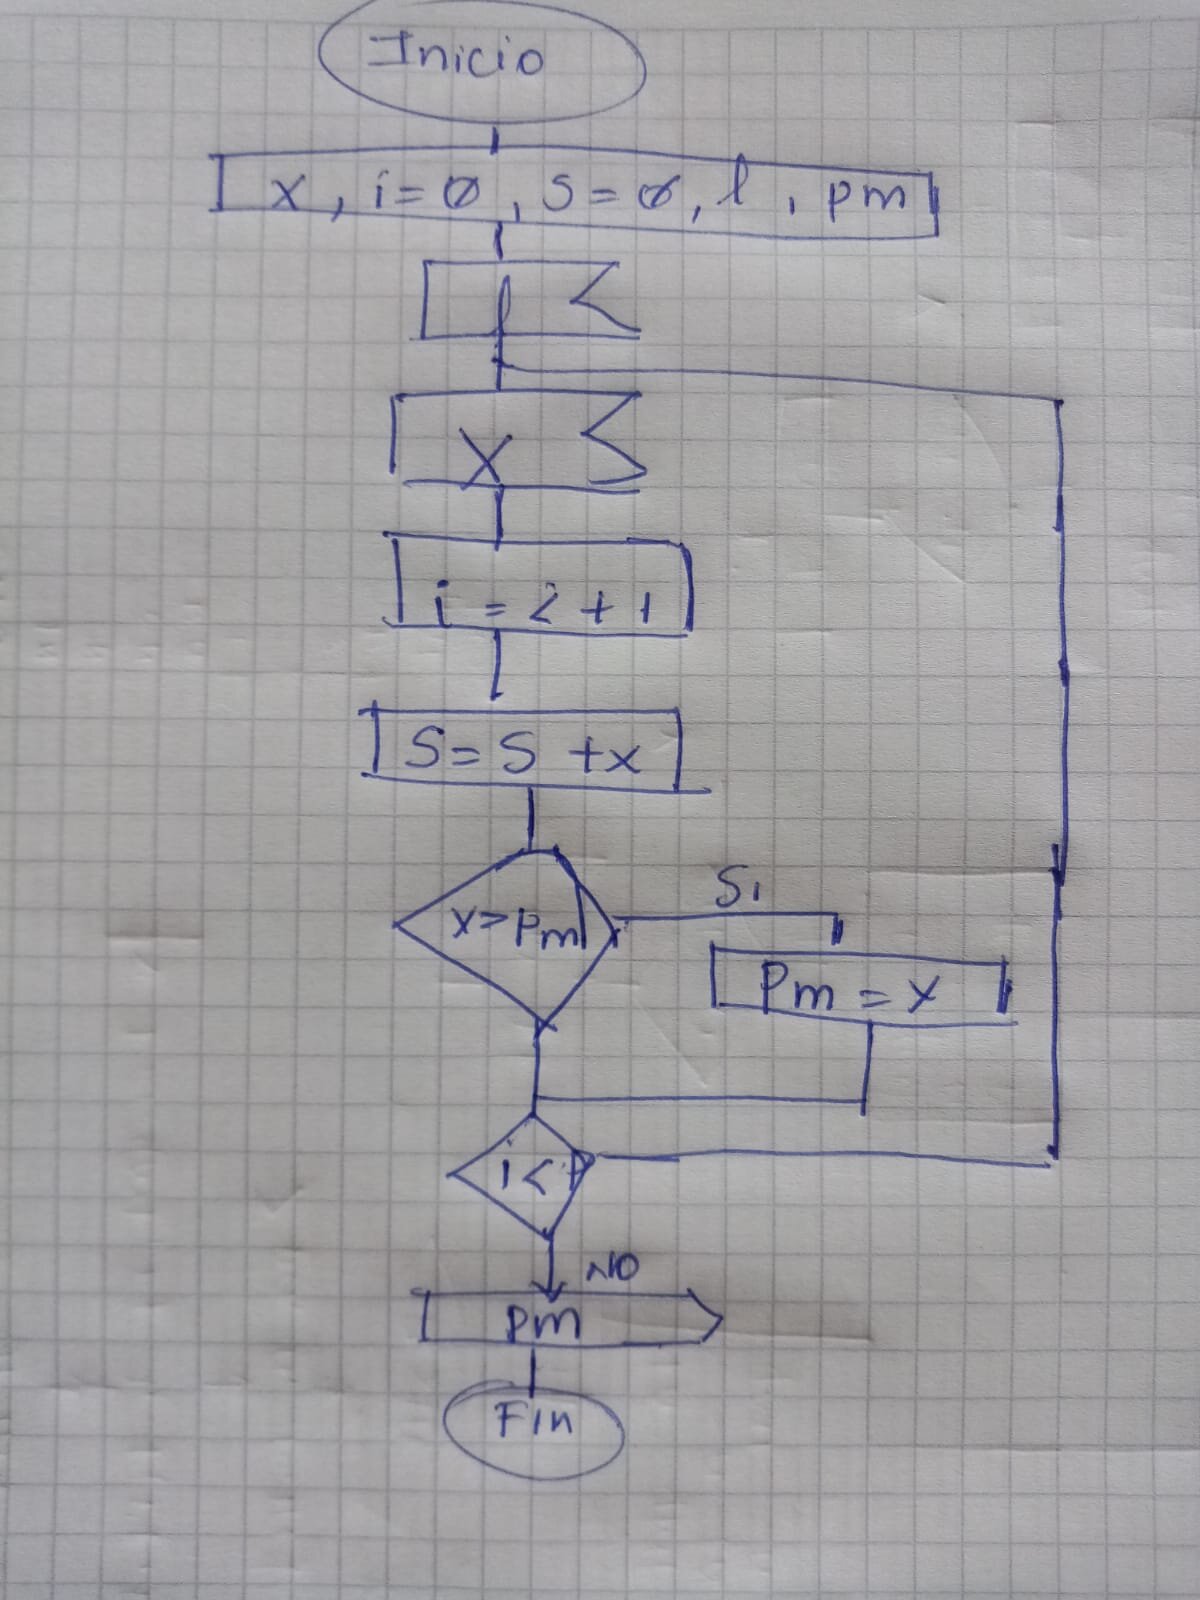 Inicio
x, i=0, S=0, l, pm
l
X
i = i + 1
S = S + x
x > Pm
Si
Pm = x
i <
NO
pm
Fin